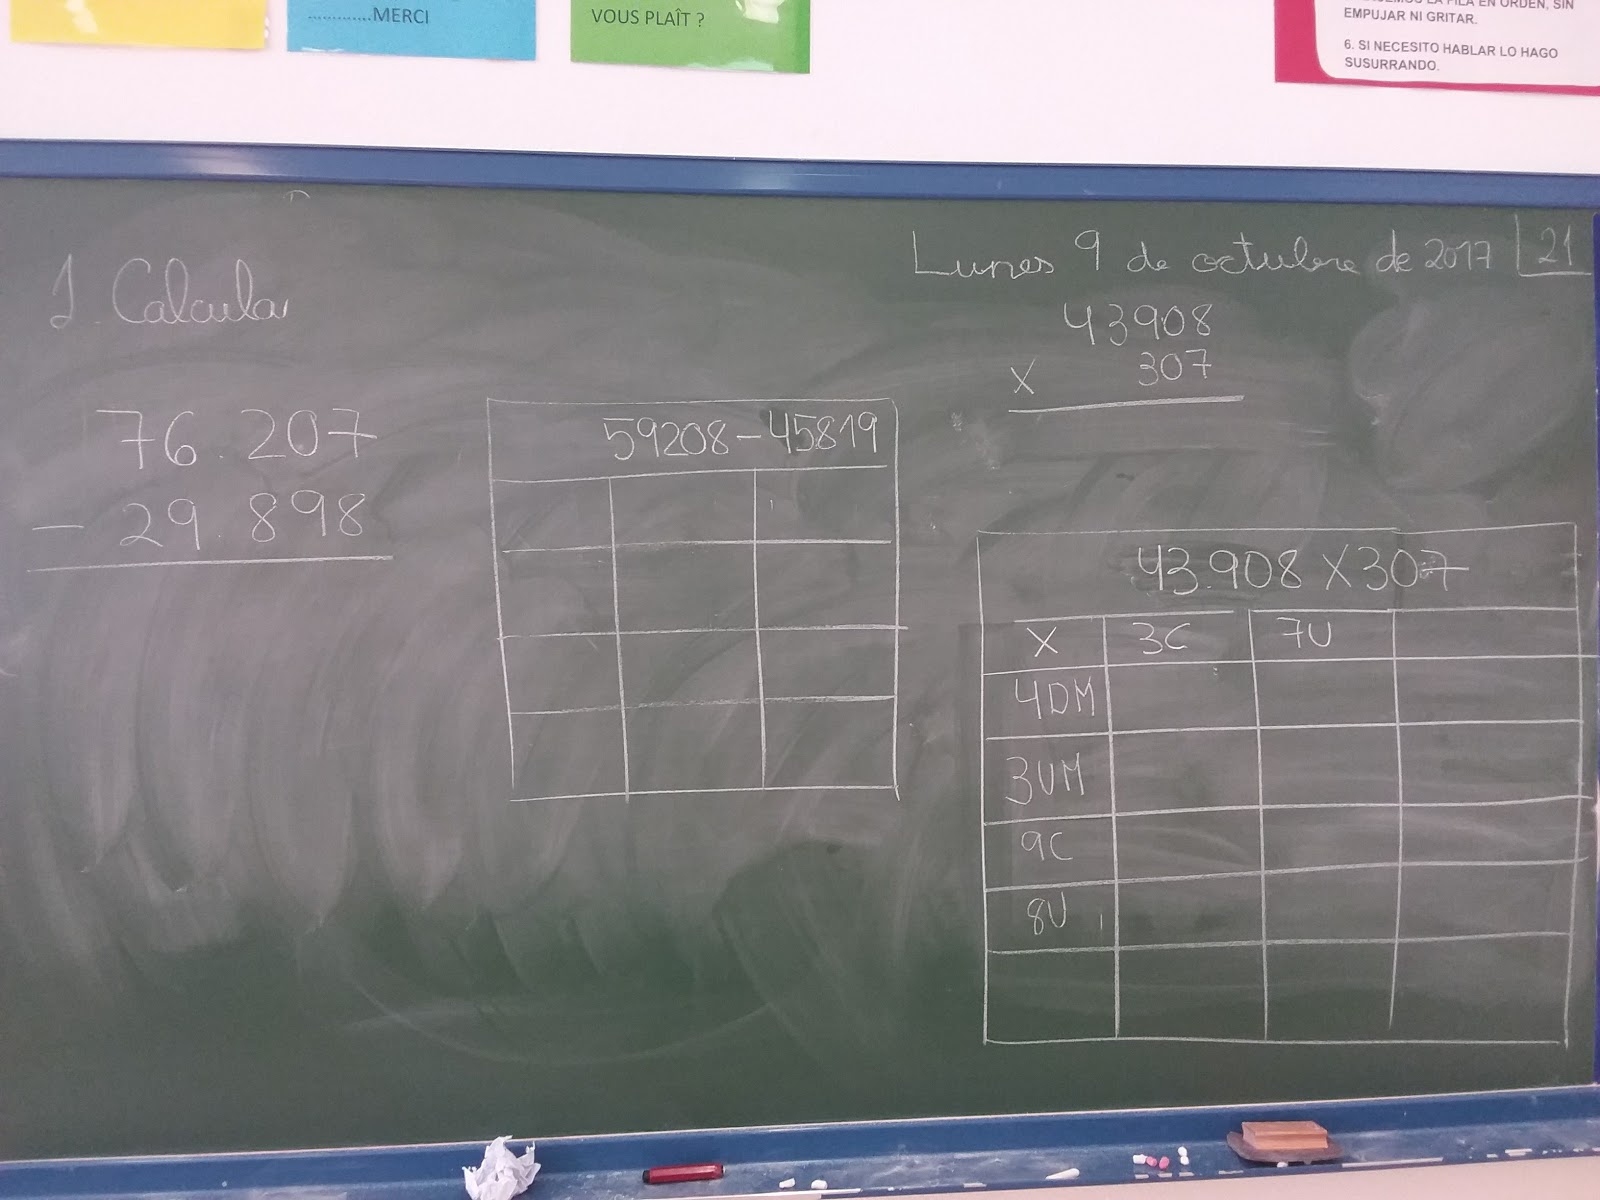 .............MERCI
VOUS PLAÎT ?
EMPUJAR NI GRITAR.
6. SI NECESITO HABLAR LO HAGO
SUSURRANDO.
Lunes 9 de octubre de 2017 21
1. Calcula
76.207
- 29.898
59208-45819
43908
x 307
43.908 X 307
X 3C 7U
4DM
3UM
9C
8U